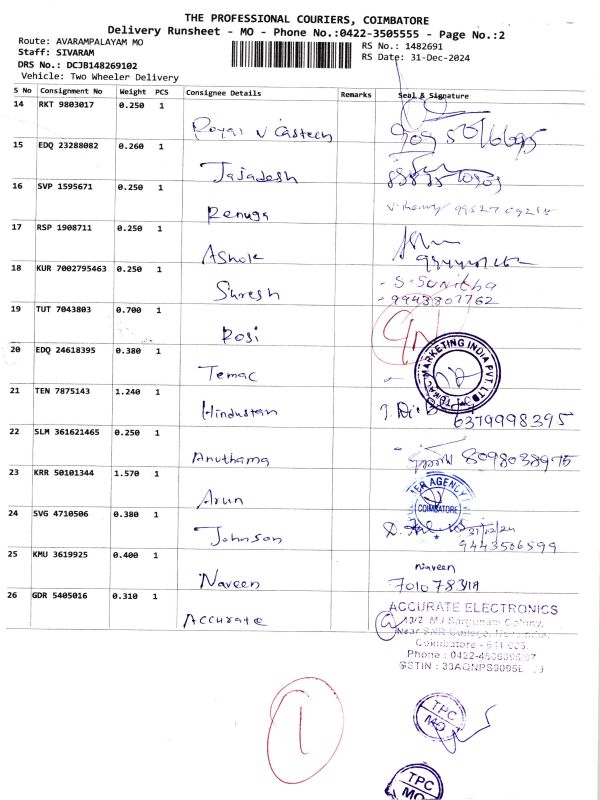 THE PROFESSIONAL COURIERS, COIMBATORE
Delivery Runsheet - MO - Phone No.:0422-3505555 - Page No.:2
Route: AVARAMPALAYAM MO
RS No.: 1482691
Staff: SIVARAM
RS Date: 31-Dec-2024
DRS No.: DCJB148269102
Vehicle: Two Wheeler Delivery
S No Consignment No Weight PCS Consignee Details Remarks Seal & Signature
14 RKT 9803017 0.250 1
Royal V Casteen
15 EDQ 23288082 0.260 1
Jajadesh
16 SVP 1595671 0.250 1
Renuga
17 RSP 1908711 0.250 1
Ashok
18 KUR 7002795463 0.250 1
Suresh
S. Sunitha
9943807762
19 TUT 7043803 0.700 1
Rosi
20 EDQ 24618395 0.380 1
Temac
TEMAC MARKETING INDIA PVT. LTD
21 TEN 7875143 1.240 1
Hindustan
6379998395
22 SLM 361621465 0.250 1
Anuthama
8098038975
23 KRR 50101344 1.570 1
Arun
AGENCY
COIMBATORE
24 SVG 4710506 0.380 1
Johnson
31/12/24
9443506599
25 KMU 3619925 0.400 1
Naveen
naveen
26 GDR 5405016 0.310 1
Accurate
ACCURATE ELECTRONICS
Coimbatore
Phone : 0422-
GSTIN :
1
TPC
MO
TPC
MO